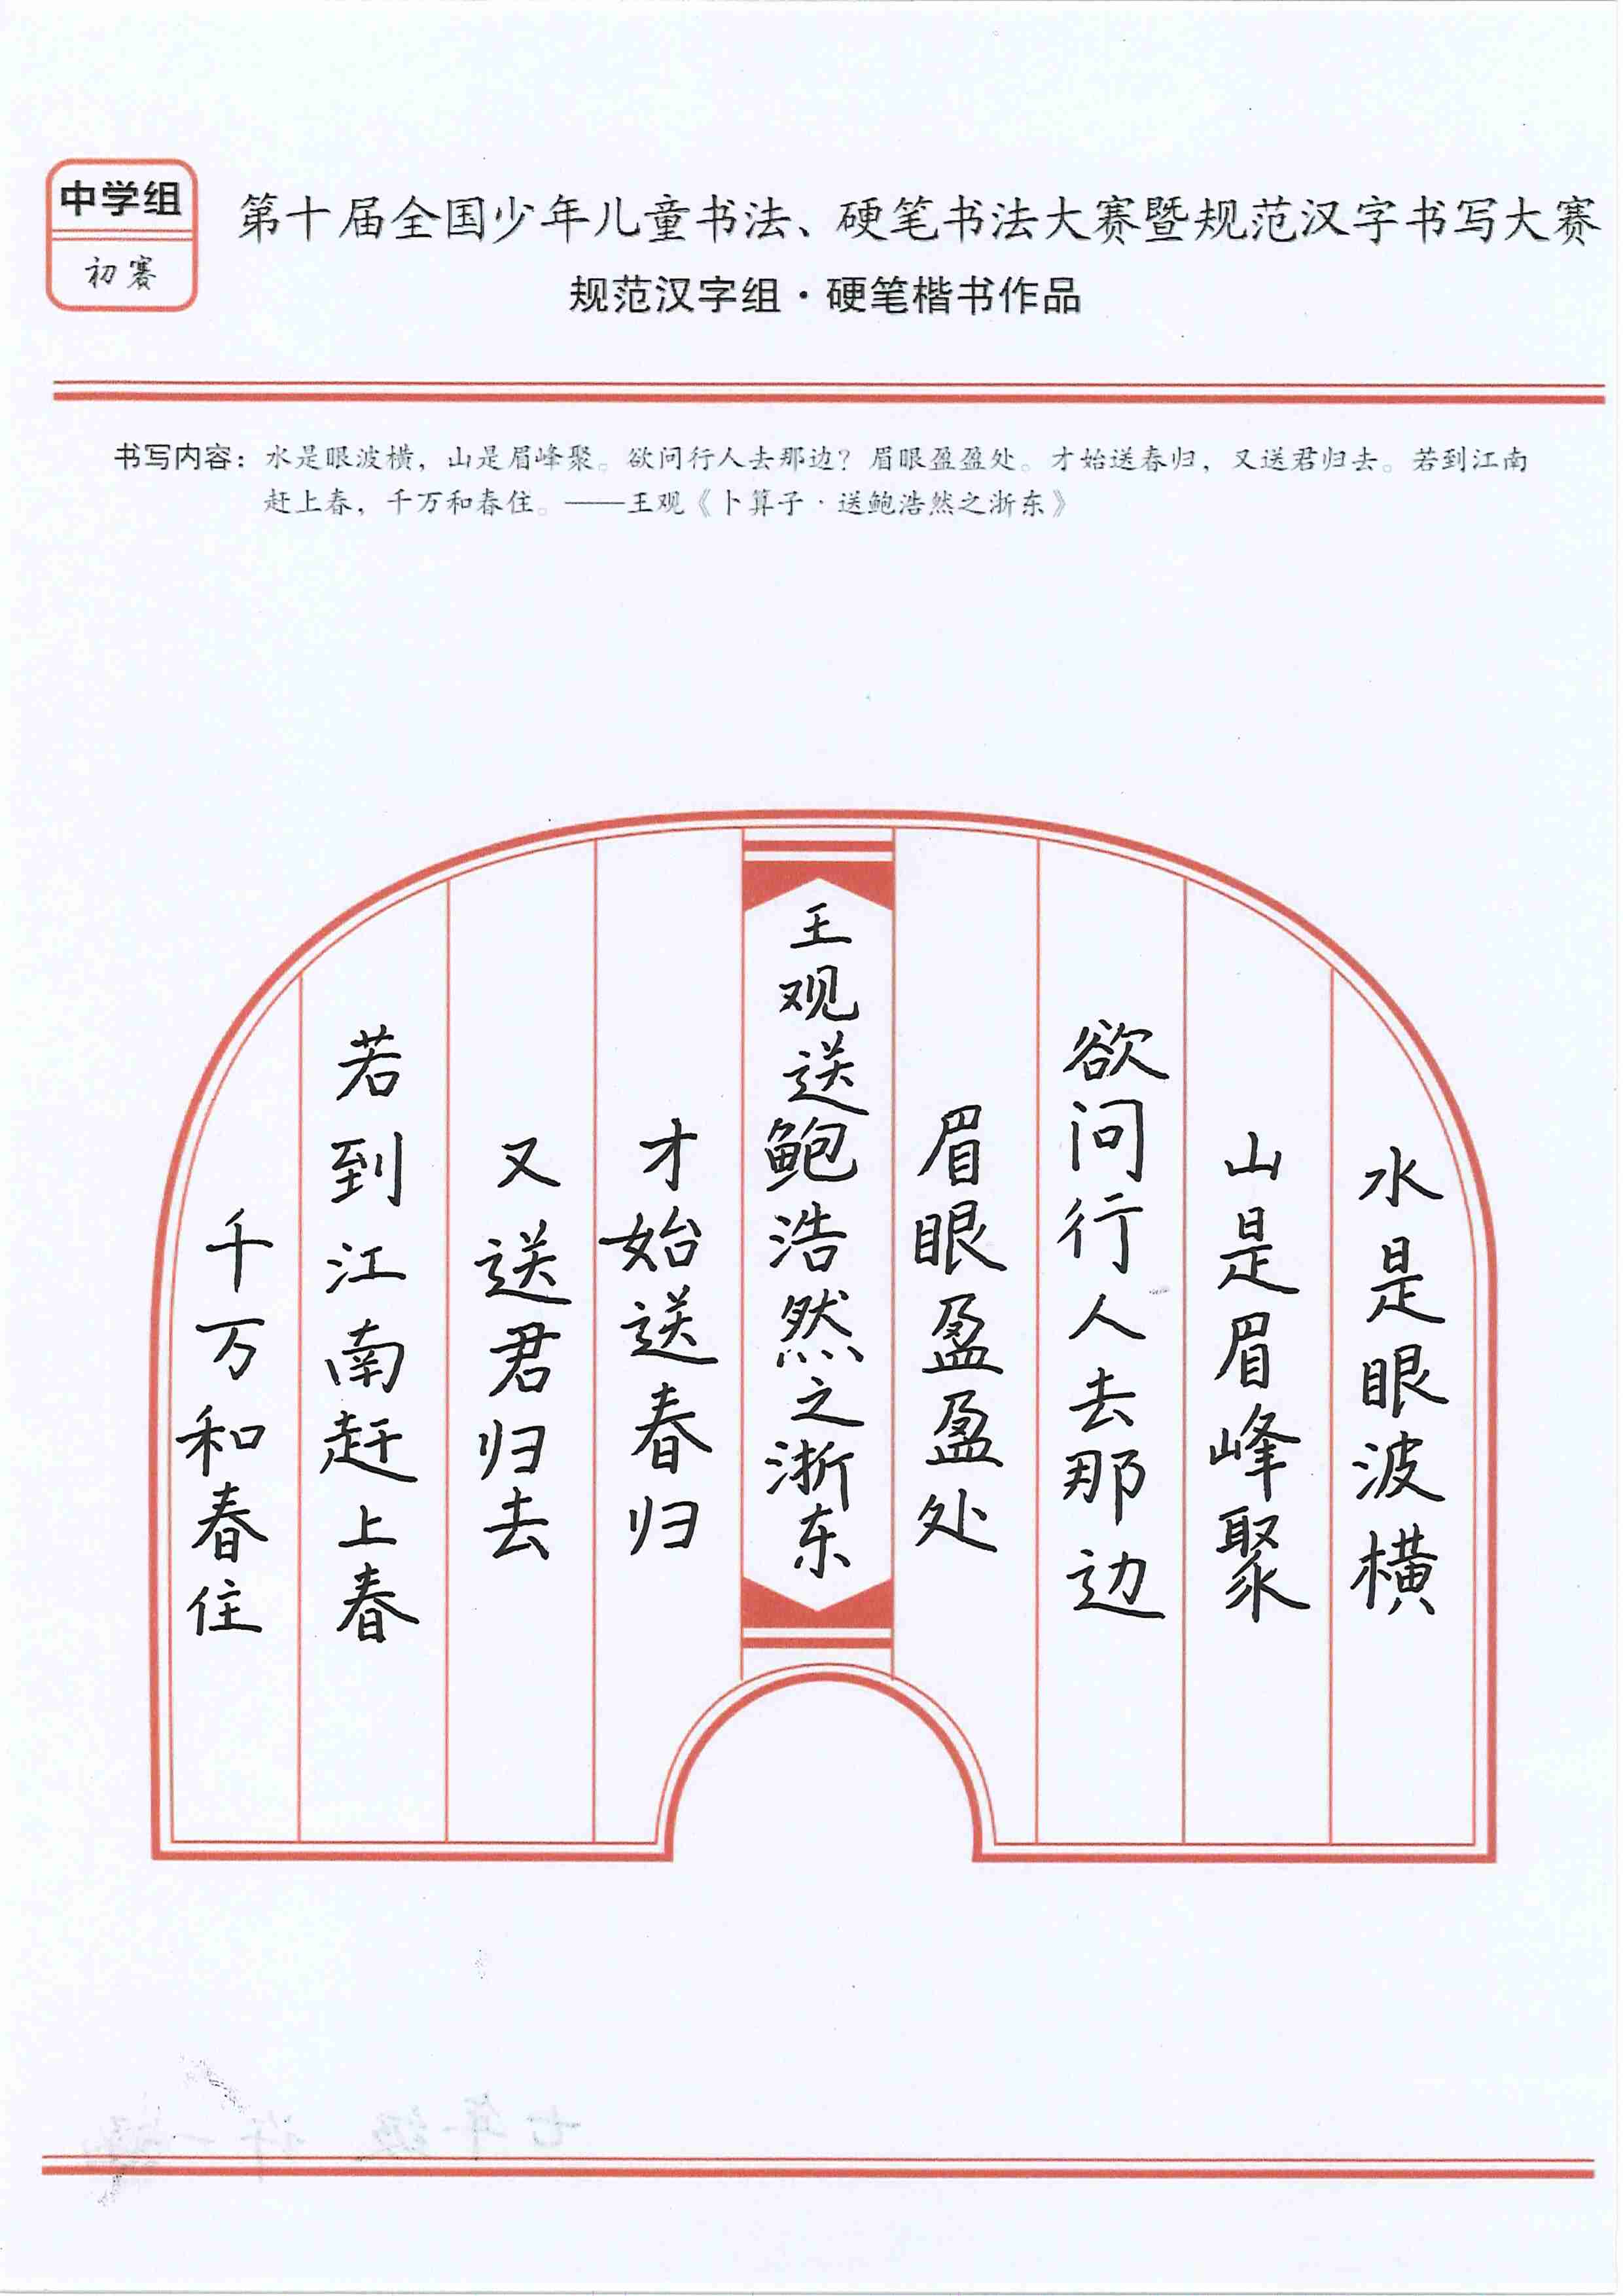 中学组
初赛
第十届全国少年儿童书法、硬笔书法大赛暨规范汉字书写大赛
规范汉字组·硬笔楷书作品
书写内容：水是眼波横，山是眉峰聚。欲问行人去那边？眉眼盈盈处。才始送春归，又送君归去。若到江南
赶上春，千万和春住。——王观《卜算子·送鲍浩然之浙东》
水是眼波横
山是眉峰聚
欲问行人去那边
眉眼盈盈处
王观送鲍浩然之浙东
才始送春归
又送君归去
若到江南赶上春
千万和春住
七年级 许一